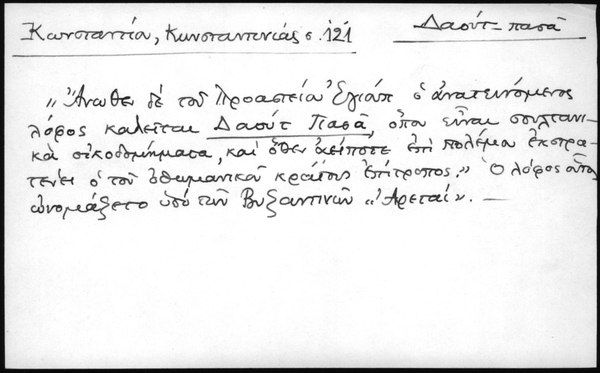 Κωνσταντίου, Κωνσταντινιάς σ. 121
Δαούτ-πασᾶ
"Ἄνωθεν δὲ τοῦ Προαστείου Ἐγιάπ ὁ ἀνατεινόμενος
λόφος καλεῖται Δαούτ Πασᾶ, ὅπου εἶναι σουλτανι-
κὰ οἰκοδομήματα, καὶ ὅθεν ἐπὶ πολέμου ἐκστρα-
τεύει ὁ τοῦ ὀθωμανικοῦ κράτους ἐπίτροπος." Ὁ λόφος οὗτος
ὠνομάζετο ὑπὸ τῶν Βυζαντινῶν "Ἀρεταί".—